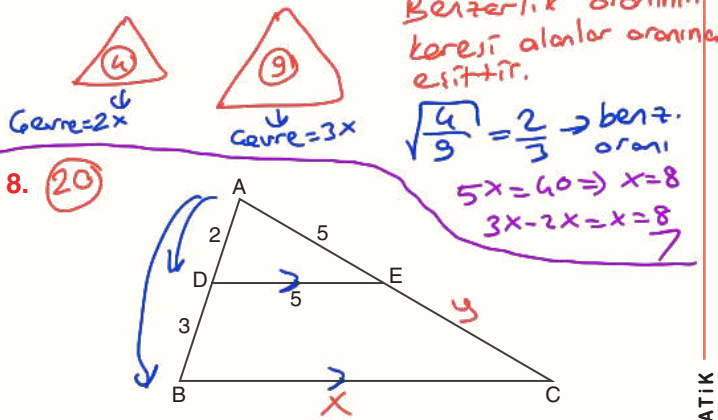 Benzerlik oranının
karesi alanlar oranına
eşittir.
4
9
Çevre=2x
Çevre=3x
√4/9 = 2/3 → benz.
oranı
5x=40 ⇒ x=8
3x-2x=x=8
8. 20
A
2
5
D
E
5
3
y
B
C
x
ATiK